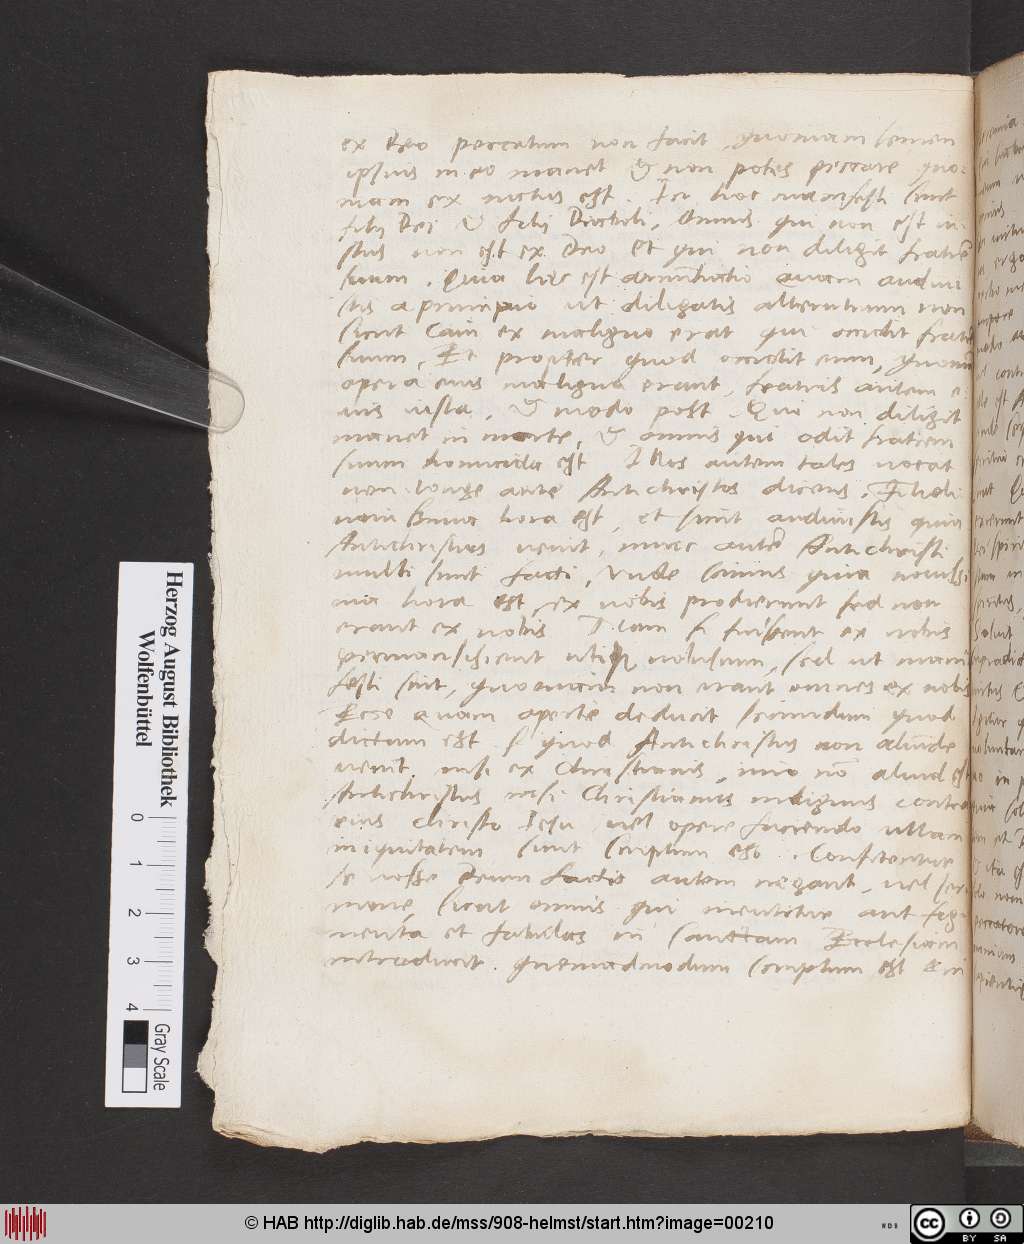 ex Deo peccatum non facit, quoniam semen
ipsius in eo manet & non potes peccare quo-
niam ex natus est. In hoc manifesti sunt
filij Dei & filij Diaboli, Omnis qui non est iu-
stus non est ex Deo et qui non diligit fratrē
suum. Quia hęc est annūtiatio quam audiui
stis a principio ut diligatis alterutrum non
sicut Cain ex maligno erat qui occidit fratrē
suum, Et propter quod occidit eum, quoniā
opera eius maligna erant, fratris autem e-
ius iusta, & modo post. Qui non diligit
manet in morte, & omnis qui odit fratrem
suum homicida est. Illos autem tales uocat
non longe ante Antichristos dicens, Filioli
nouissima hora est, et sicut audiuistis quia
Antichristus uenit, nunc autē Antichristi
multi sunt facti, Vnde scimus quia nouissi
ma hora est, ex nobis prodierunt sed non
erant ex nobis. Nam si fuissent ex nobis
permansissent utiq nobiscum, sed ut mani
festi sint, quoniam non erant omnes ex nobis
Ecce quam aperte deducit secundum quod
dictum est quod Antichristus non aliunde
uenit, nisi ex Christianis, imo nō aliud est
Antichristus nisi Christianus indignus contra
eius Christo Jesu uel opere faciendo ullam
iniquitatem sicut scriptum est. Confitentur
se nosse Deum factis autem negant, uel ser
mone, sicut omnis qui mentitur aut fig
menta et fabulas in sanctam Ecclesiam
introducit. quemadmodum scriptum est
Herzog August Bibliothek
Wolfenbüttel
0 1 2 3 4
Gray Scale
© HAB http://diglib.hab.de/mss/908-helmst/start.htm?image=00210
WDB
cc BY SA